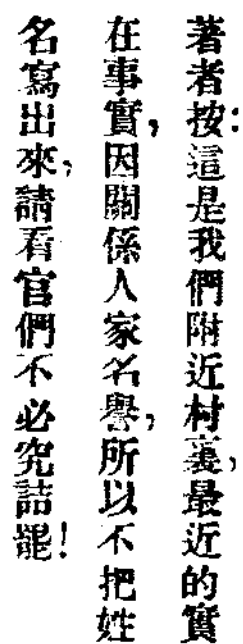 著者按：這是我們附近村裏，最近的實
在事實，因關係人家名譽，所以不把姓
名寫出來，請看官們不必究詰罷！